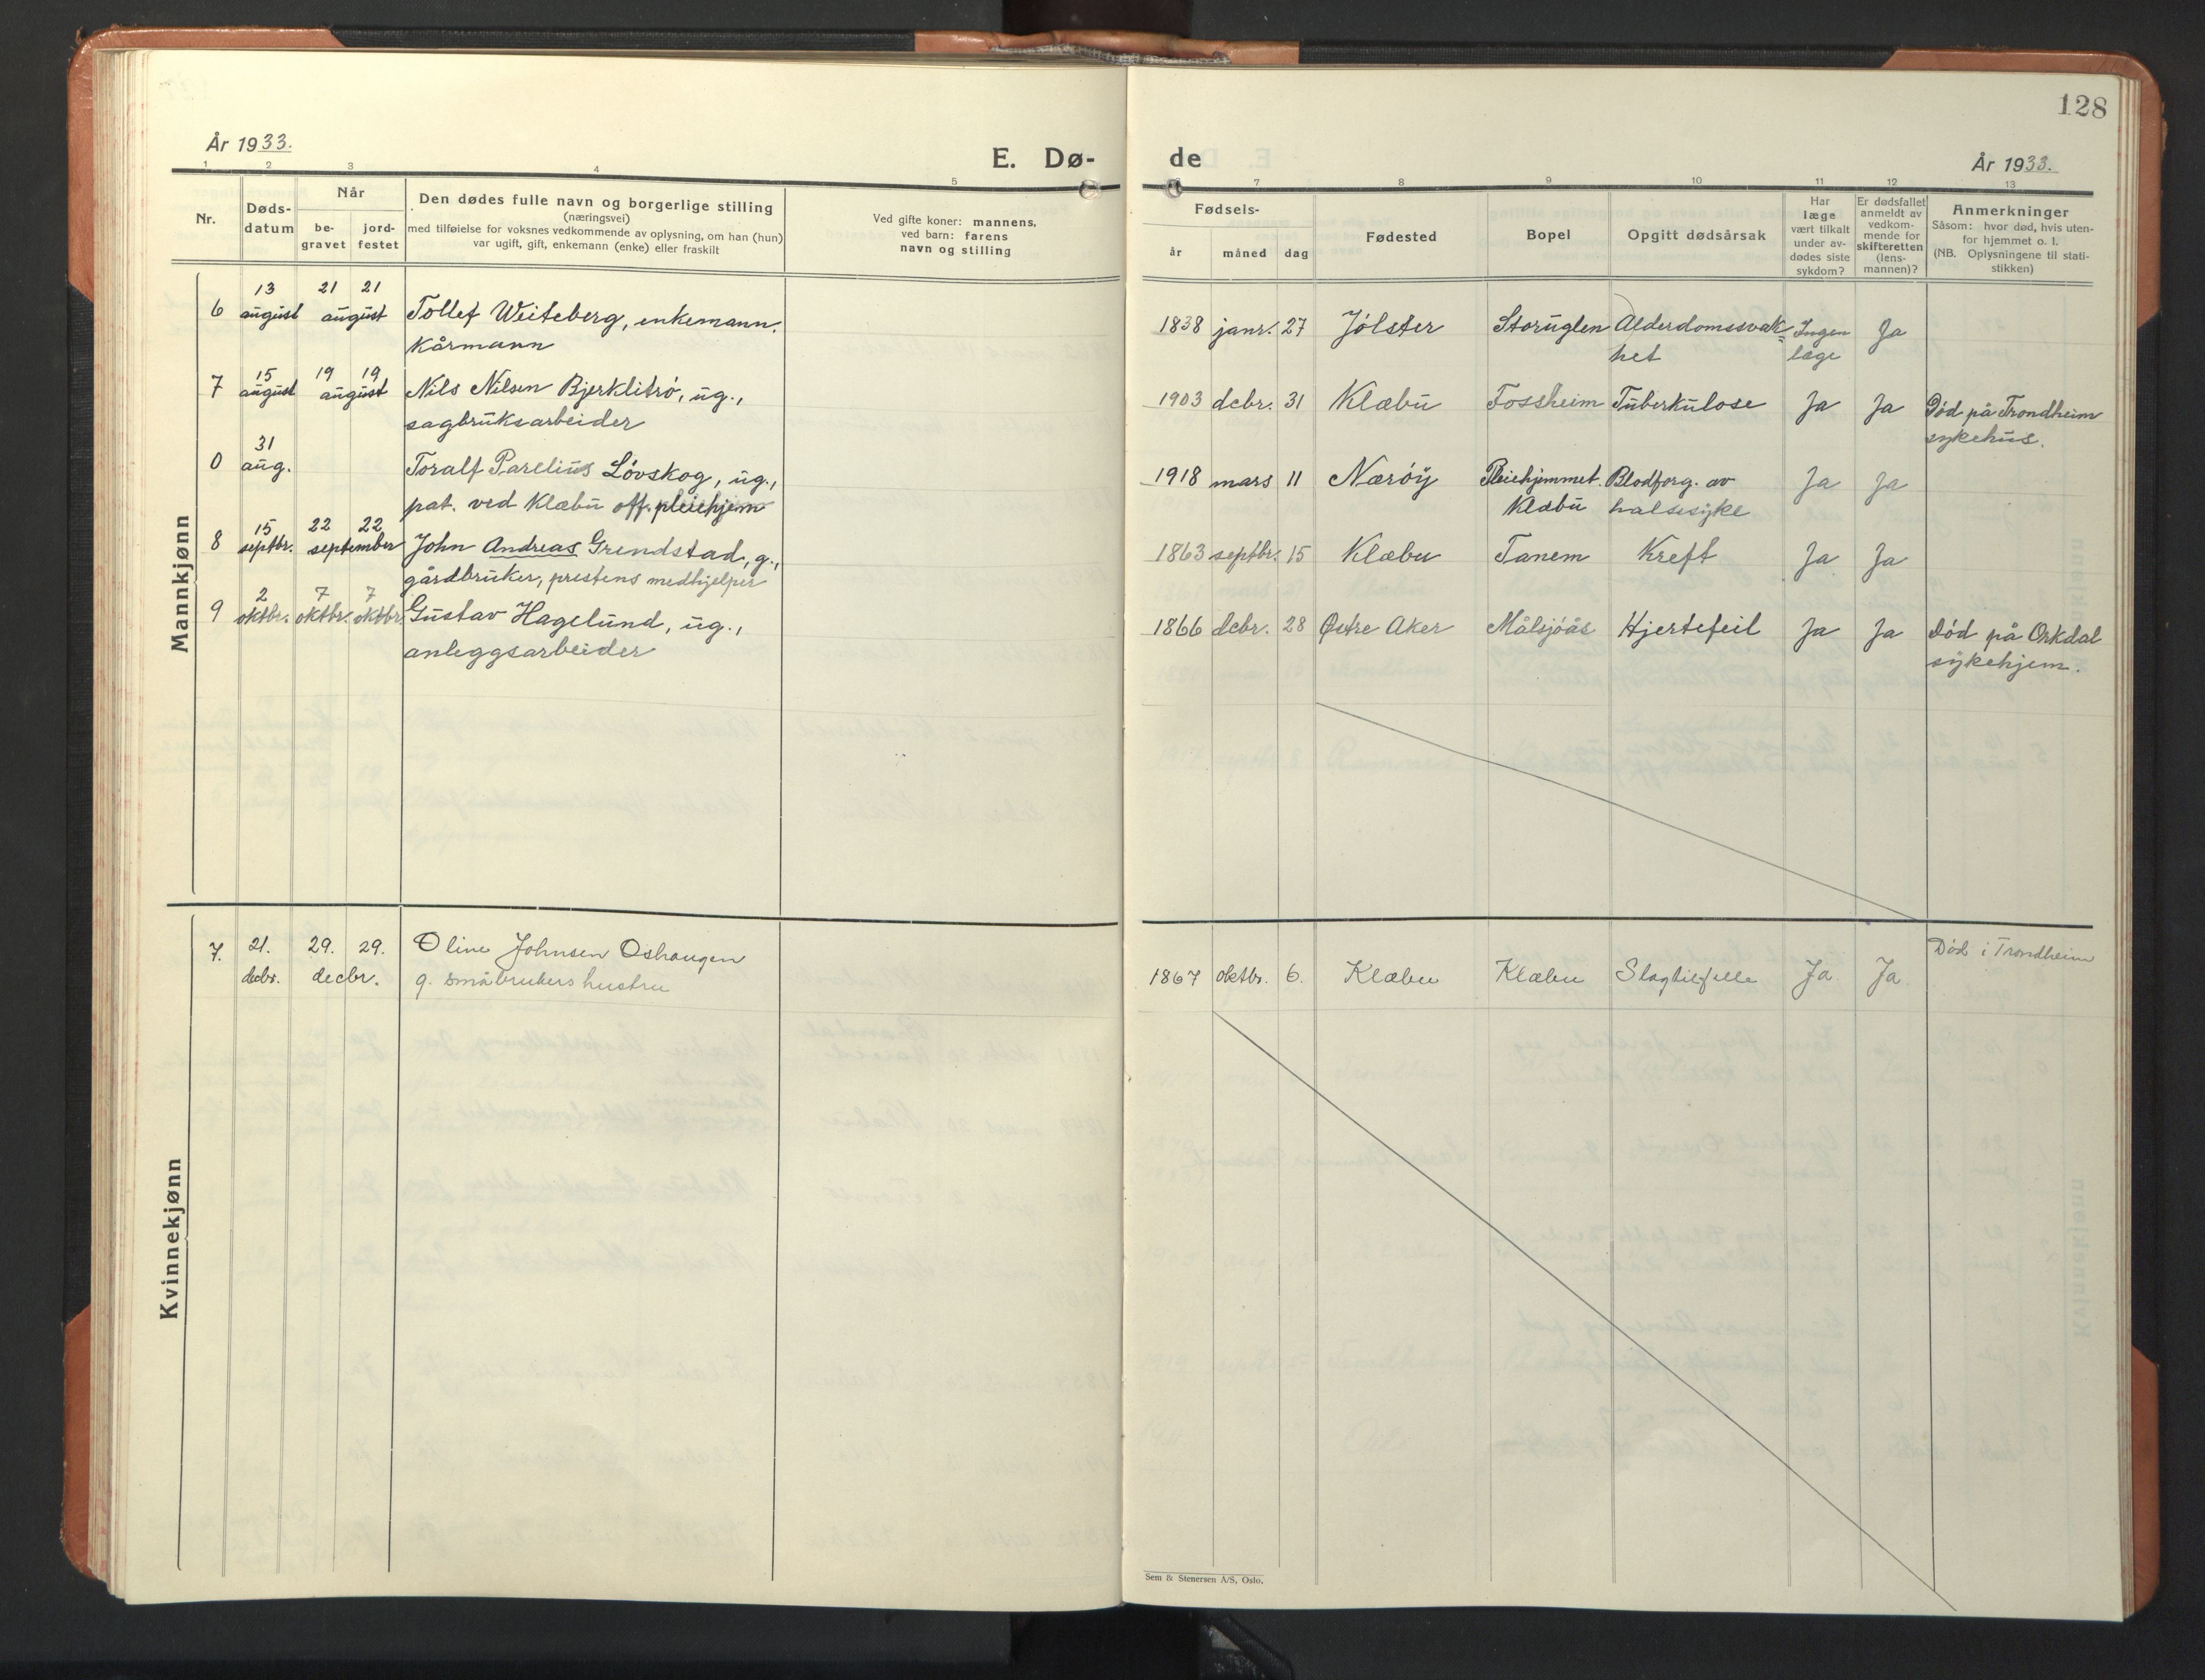 128
År 1933.
E. Dø-
de
År 1933.
1 2 3 4 5 6 7 8 9 10 11 12 13
Nr.
Døds-
datum
Når
be-
gravet
jord-
festet
Den dødes fulle navn og borgerlige stilling
(næringsvei)
med tilføielse for voksnes vedkommende av oplysning, om han (hun)
var ugift, gift, enkemann (enke) eller fraskilt
Ved gifte koner: mannens,
ved barn: farens
navn og stilling
Fødsels-
år måned dag
Fødested
Bopel
Opgitt dødsårsak
Har
læge
vært tilkalt
under av-
dødes siste
sykdom?
Er dødsfallet
anmeldt av
vedkom-
mende for
skifteretten
(lens-
mannen)?
Anmerkninger
Såsom: hvor død, hvis uten-
for hjemmet o. l.
(NB. Oplysningene til stati-
stikken)
Mannkjønn
13 21 21
6 august august Tollef Weiteberg, enkemann. 1838 janr. 27 Jølster Storuglen Alderdomssvak= Ingen Ja
kårmann het læge
15 19 19
7 august august Nils Nilsen Bjerklitrø, ug., 1903 dcbr. 31 Klæbu Fossheim Tuberkulose Ja Ja Død på Trondheim
sagbruksarbeider sykehus.
31
0 aug. Toralf Parelius Løvskog, ug., 1918 mars 11 Nærøy Pleiehjemmet. Blodforg. av Ja Ja
pat. ved Klæbu off. pleiehjem Klæbu halssyke
15 22 22
8 septbr. september John Andreas Grendstad, g., 1863 septbr. 15 Klæbu Tanem Kreft Ja Ja
gårdbruker, prestens medhjelper
2 7 7
9 oktbr. oktbr. oktbr. Gustav Hagelund, ug., 1866 dcbr. 28 Østre Aker Målsjøås Hjertefeil Ja Ja Død på Orkdal
anleggsarbeider sykehjem.
Kvinnekjønn
7. 21. 29. 29. Oline Johnsen Oshaugen Død i Trondheim
decbr. decbr. g. småbrukers hustru 1867 oktbr. 6. Klæbu Klæbu Slagtilfelle Ja Ja
Sem & Stenersen A/S, Oslo.